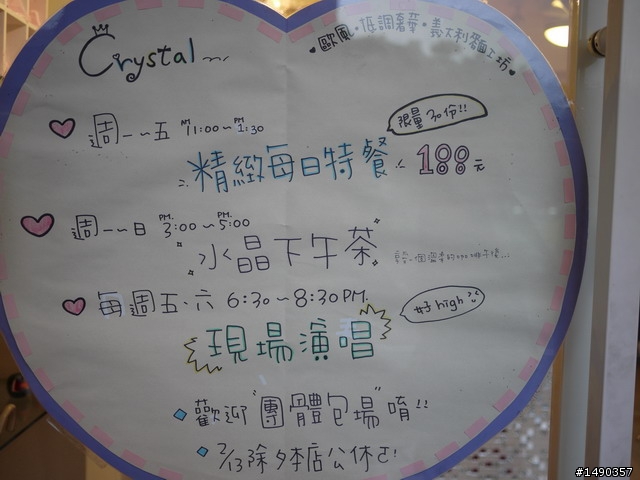 Crystal
歐風·低調奢華·義大利麵工坊
週一~五 AM 11:00~PM 1:30
限量30份!!
精緻每日特餐 188元
週一~日 PM. 3:00~PM. 5:00
水晶下午茶
每週五·六 6:30~8:30PM.
好high
現場演唱
歡迎"團體包場"唷!!
2/13除夕本店公休ㄛ!
#1490357